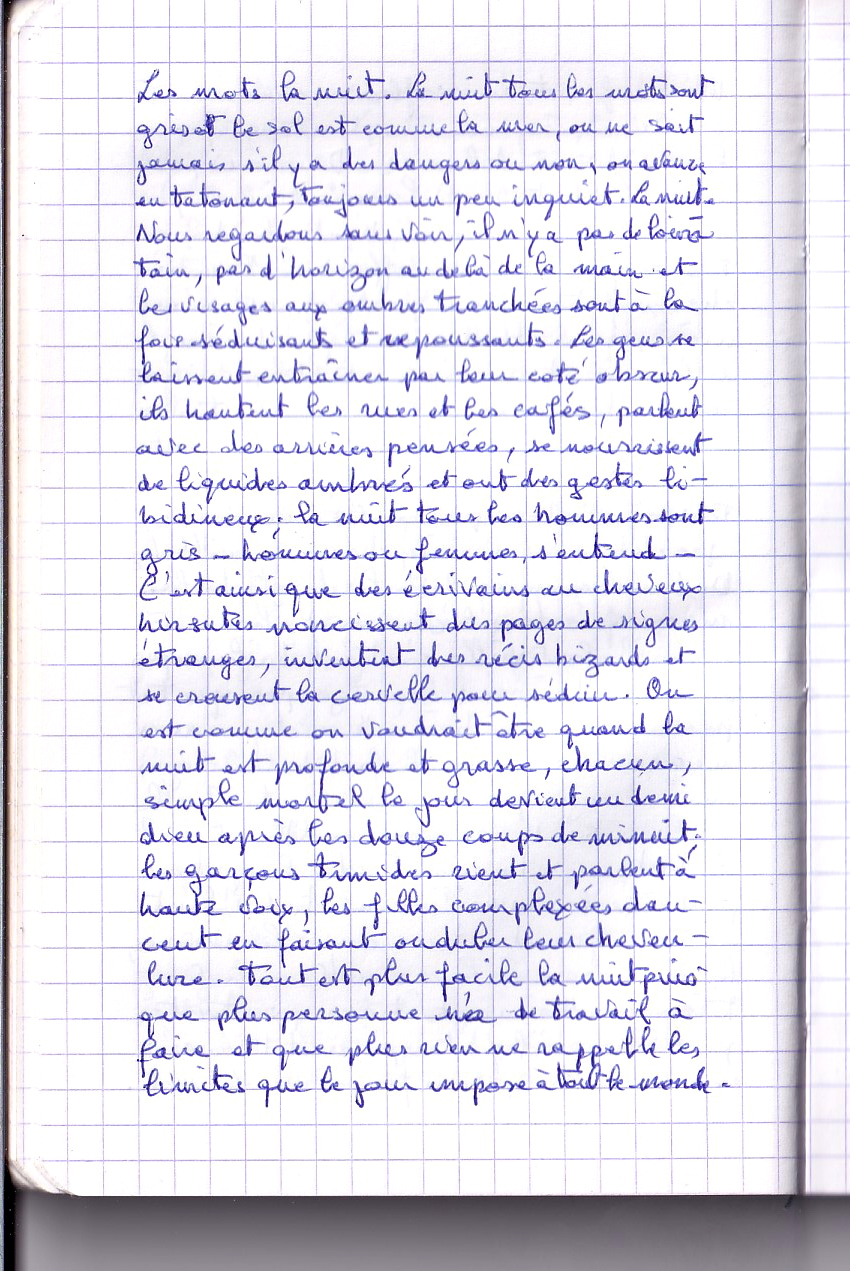 Les mots la nuit. La nuit tous les mots sont
gris et le sol est comme la mer, on ne sait
jamais s'il y a des dangers ou non, on avance
en tatonant, toujours un peu inquiet. La nuit.
Nous regardons sans voir, il n'y a pas de loin
tain, pas d'horizon au delà de la main et
les visages aux ombres tranchées sont à la
fois séduisants et repoussants. Les gens se
laissent entraîner par leur coté obscur,
ils hantent les rues et les cafés, parlent
avec des arrières pensées, se nourrissent
de liquides ambrés et ont des gestes li-
bidineux; la nuit tous les hommes sont
gris - hommes ou femmes, s'entend -
C'est ainsi que des écrivains au cheveux
hirsutes noircissent des pages de signes
étranges, inventent des récis bizards et
se creusent la cervelle pour séduire. On
est comme on voudrait être quand la
nuit est profonde et grasse, chacun,
simple mortel le jour devient un demi
dieu après les douze coups de minuit,
les garçons timides rient et parlent à
haute voix, les filles complexées dan-
cent en faisant onduler leur cheve-
lure. Tout est plus facile la nuit puis
que plus personne n'a de travail à
faire et que plus rien ne rappelle les
limites que le jour impose à tout le monde.